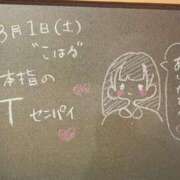 3月1日(土)
"こはる"
本指の
Tセンパイ